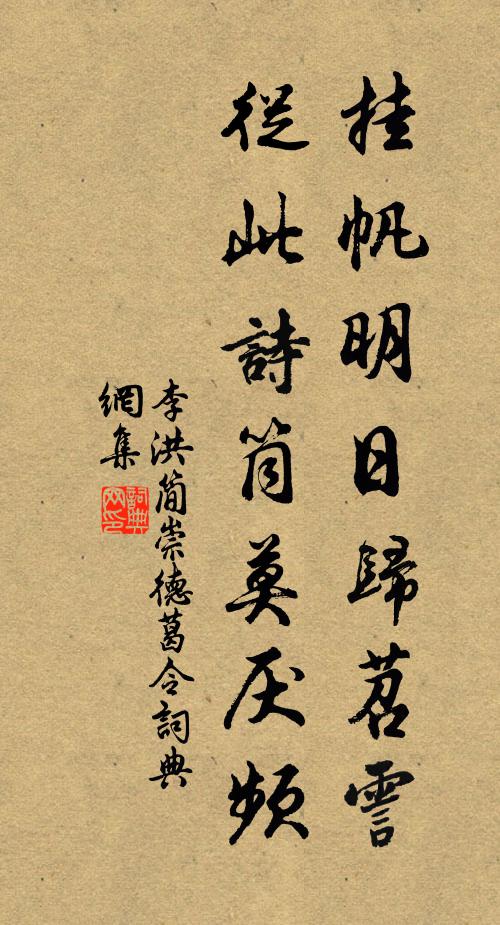 挂帆明日歸苕霅
從此詩筒莫厌頻
李洪簡崇德葛令詞典
網集
詞典
网印